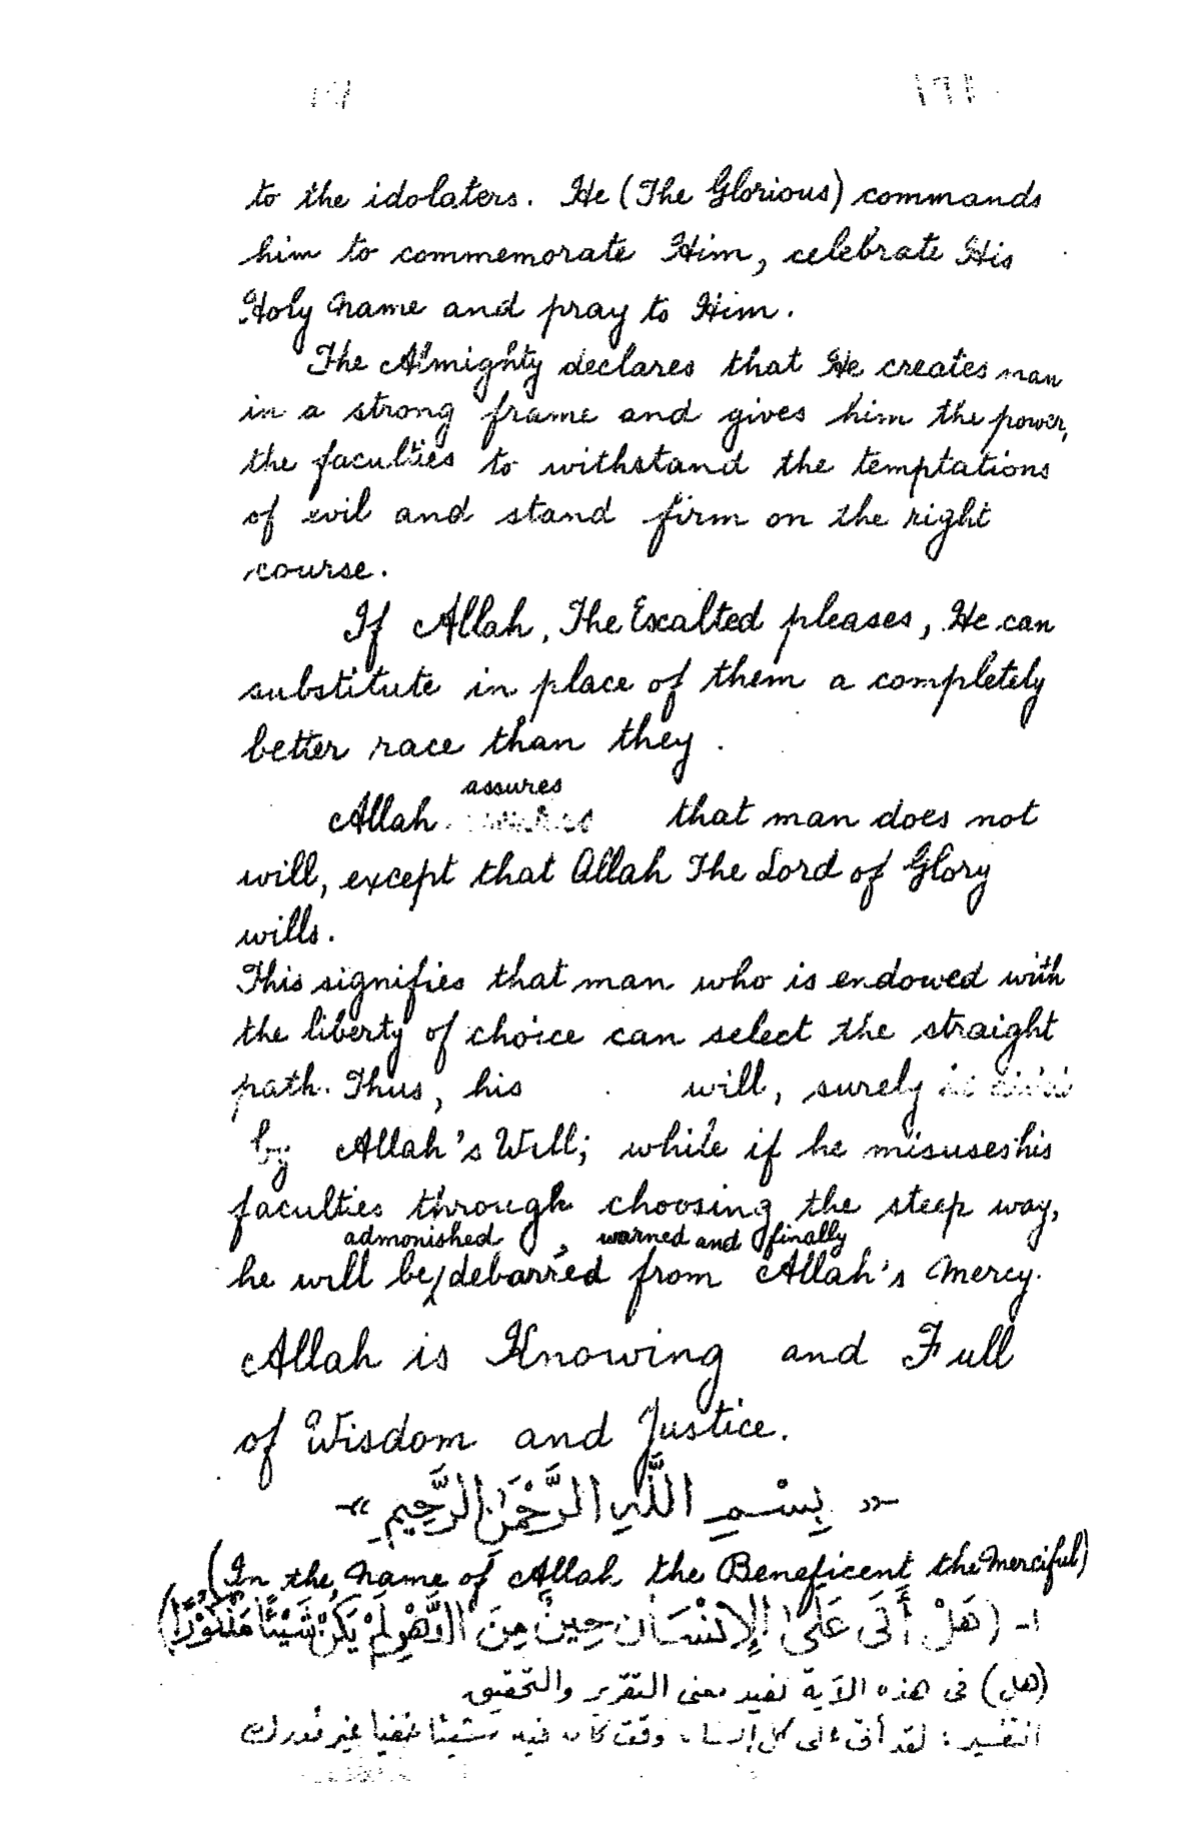 to the idolaters. He (The Glorious) commands
him to commemorate Him, celebrate His
Holy Name and pray to Him.
The Almighty declares that He creates man
in a strong frame and gives him the power,
the faculties to withstand the temptations
of evil and stand firm on the right
course.
If Allah, The Exalted pleases, He can
substitute in place of them a completely
better race than they.
assures
Allah that man does not
will, except that Allah The Lord of Glory
wills.
This signifies that man who is endowed with
the liberty of choice can select the straight
path. Thus, his will, surely
by Allah's Will; while if he misuses his
faculties through choosing the steep way,
admonished, warned and finally
he will be debarred from Allah's Mercy.
Allah is Knowing and Full
of Wisdom and Justice.
بِسْمِ اللَّهِ الرَّحْمَنِ الرَّحِيمِ
(In the Name of Allah the Beneficent the Merciful)
١- (هَلْ أَتَى عَلَى الإِنْسَانِ حِينٌ مِنَ الدَّهْرِ لَمْ يَكُنْ شَيْئًا مَذْكُورًا)
(هل) فى هذه الآية تفيد معنى التقرير والتحقيق
التفسير: لقد أتى على كل إنسان وقت كان فيه شيئا خفيا غير